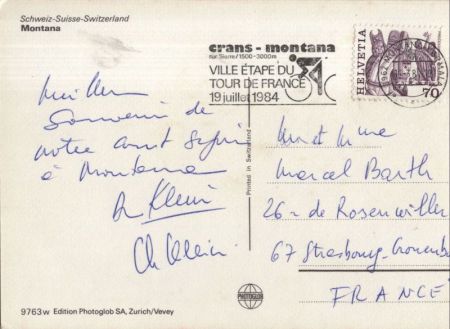 Schweiz-Suisse-Switzerland
Montana
crans-montana
sur Sierre/1500-3000m
VILLE ÉTAPE DU
TOUR DE FRANCE
19 juillet 1984
HELVETIA
70
Souvenir de
notre court séjour
à Montana
Klein
Ch Klein
Printed in Switzerland
Marcel Barth
26 de Rosenwiller
67 Strasbourg-Cronenb
FRANCE
9763w Edition Photoglob SA, Zurich/Vevey
PHOTOGLOB